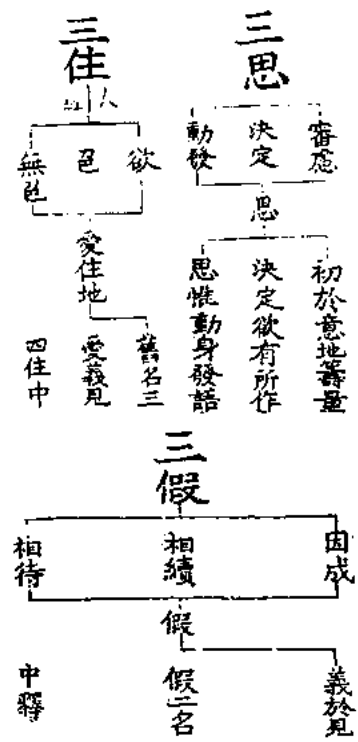 三思
審慮
決定
動發
思
初於意地籌量
決定欲有所作
思惟動身發語
三住
人
欲
色
無色
愛住地
舊名三
愛義見
四住中
三假
因成
相續
相待
假
義於見
假二名
中釋